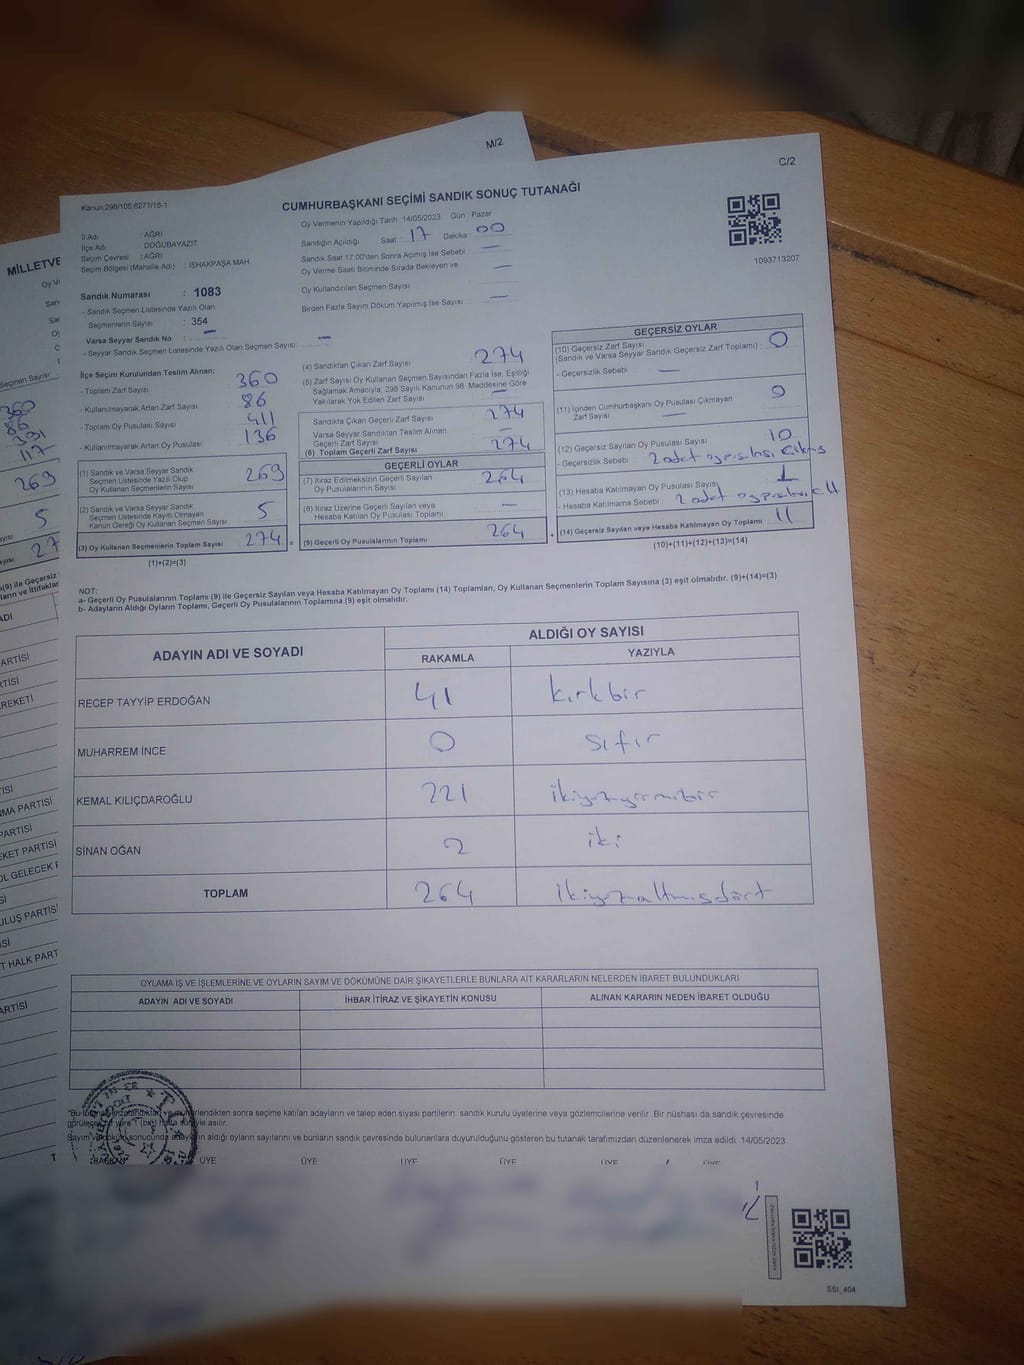 M/2
C/2
Kanun;298/105;6271/18-1
CUMHURBAŞKANI SEÇİMİ SANDIK SONUÇ TUTANAĞI
Oy Vermenin Yapıldığı Tarih :14/05/2023 Gün : Pazar
İl Adı : AĞRI
İlçe Adı : DOĞUBAYAZIT
Seçim Çevresi : AĞRI
Seçim Bölgesi (Mahalle Adı) : İSHAKPAŞA MAH.
Sandığın Açıldığı Saat : 17 Dakika : 00
Sandık Saat 17:00'den Sonra Açımış İse Sebebi : —
Oy Verme Saati Bitiminde Sırada Bekleyen ve —
Oy Kullandırılan Seçmen Sayısı :
Birden Fazla Sayım Döküm Yapılmış İse Sayısı : —
1093713207
Sandık Numarası : 1083
- Sandık Seçmen Listesinde Yazılı Olan
Seçmenlerin Sayısı : 354
Varsa Seyyar Sandık No : —
- Seyyar Sandık Seçmen Listesinde Yazılı Olan Seçmen Sayısı: —
İlçe Seçim Kurulundan Teslim Alınan;
- Toplam Zarf Sayısı : 360
- Kullanılmayarak Artan Zarf Sayısı : 86
- Toplam Oy Pusulası Sayısı : 411
- Kullanılmayarak Artan Oy Pusulası : 136
(1) Sandık ve Varsa Seyyar Sandık
Seçmen Listesinde Yazılı Olup
Oy Kullanan Seçmenlerin Sayısı 269
(2) Sandık ve Varsa Seyyar Sandık
Seçmen Listesinde Kayıtlı Olmayan
Kanun Gereği Oy Kullanan Seçmen Sayısı 5
(3) Oy Kullanan Seçmenlerin Toplam Sayısı 274 =
(1)+(2)=(3)
(4) Sandıktan Çıkan Zarf Sayısı 274
(5) Zarf Sayısı Oy Kullanan Seçmen Sayısından Fazla İse, Eşitliği
Sağlamak Amacıyla; 298 Sayılı Kanunun 98. Maddesine Göre
Yakılarak Yok Edilen Zarf Sayısı —
Sandıkta Çıkan Geçerli Zarf Sayısı 274
Varsa Seyyar Sandıktan Teslim Alınan
Geçerli Zarf Sayısı —
(6) Toplam Geçerli Zarf Sayısı 274
GEÇERLİ OYLAR
(7) İtiraz Edilmeksizin Geçerli Sayılan
Oy Pusulalarının Sayısı 264
(8) İtiraz Üzerine Geçerli Sayılan veya
Hesaba Katılan Oy Pusulası Toplamı —
(9) Geçerli Oy Pusulalarının Toplamı 264 +
GEÇERSİZ OYLAR
(10) Geçersiz Zarf Sayısı 0
(Sandık ve Varsa Seyyar Sandık Geçersiz Zarf Toplamı) :
- Geçersizlik Sebebi : —
(11) İçinden Cumhurbaşkanı Oy Pusulası Çıkmayan 0
Zarf Sayısı —
(12) Geçersiz Sayılan Oy Pusulası Sayısı : 10
- Geçersizlik Sebebi : 2 adet
(13) Hesaba Katılmayan Oy Pusulası Sayısı 1
- Hesaba Katılmama Sebebi : 2 adet
(14) Geçersiz Sayılan veya Hesaba Katılmayan Oy Toplamı 11
(10)+(11)+(12)+(13)=(14)
NOT:
a- Geçerli Oy Pusulalarının Toplamı (9) ile Geçersiz Sayılan veya Hesaba Katılmayan Oy Toplamı (14) Toplamları, Oy Kullanan Seçmenlerin Toplam Sayısına (3) eşit olmalıdır. (9)+(14)=(3)
b- Adayların Aldığı Oyların Toplamı, Geçerli Oy Pusulalarının Toplamına (9) eşit olmalıdır.
ADAYIN ADI VE SOYADI
ALDIĞI OY SAYISI
RAKAMLA YAZIYLA
RECEP TAYYİP ERDOĞAN 41 kırkbir
MUHARREM İNCE 0 sıfır
KEMAL KILIÇDAROĞLU 221 ikiyüzyirmibir
SİNAN OĞAN 2 iki
TOPLAM 264 ikiyüzaltmışdört
OYLAMA İŞ VE İŞLEMLERİNE VE OYLARIN SAYIM VE DÖKÜMÜNE DAİR ŞİKAYETLERLE BUNLARA AİT KARARLARIN NELERDEN İBARET BULUNDUKLARI
ADAYIN ADI VE SOYADI İHBAR İTİRAZ VE ŞİKAYETİN KONUSU ALINAN KARARIN NEDEN İBARET OLDUĞU
sonra seçime katılan adayların ve talep eden siyasi partilerin sandık kurulu üyelerine veya gözlemcilerine verilir. Bir nüshası da sandık çevresinde
asılır.
sonucunda aldığı oyların sayılarını ve bunların sandık çevresinde bulunanlara duyurulduğunu gösteren bu tutanak tarafımızdan düzenlenerek imza edildi. 14/05/2023
BAŞKAN ÜYE ÜYE ÜYE ÜYE ÜYE ÜYE
SSI_404
MİLLETVE
360
86
391
117
269
5
27